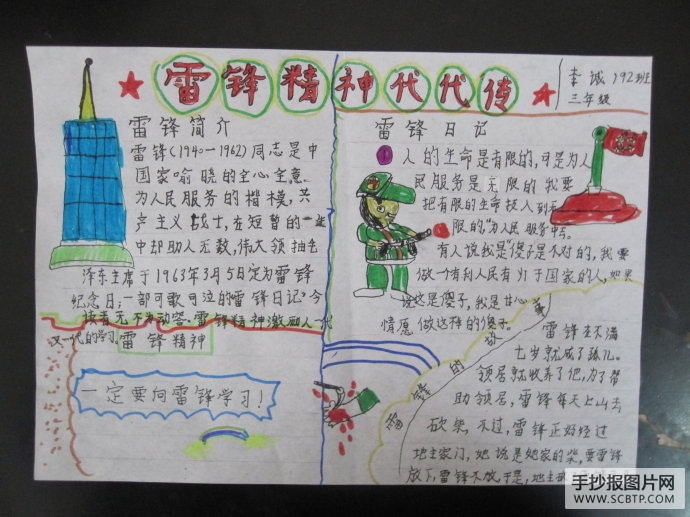 雷锋精神代代传
李诚 192班
三年级
雷锋简介
雷锋(1940—1962)同志是中
国家喻晓的全心全意
为人民服务的楷模，共
产主义战士，在短暂的一
中却助人无数，伟大领
泽东主席于1963年3月5日定为雷锋
纪念日；一部可歌可泣的"雷锋日记"令
读者无不为动容。雷锋精神激励人一代
又一代的学习。
雷锋精神
一定要向雷锋学习！
雷锋日记
1 人的生命是有限的，可是为人
民服务是无限的 我要
把有限的生命投入到无
限的"为人民服务中去。
有人说我是"傻子是不对的，我要
做一有利人民有利于国家的人，如果
说这是傻子，我是甘心
情愿做这样的傻子。
雷锋的故事
雷锋在不满
七岁就成了孤儿。
邻居就收养了他，为了帮
助邻居，雷锋每天上山去
砍柴，不过，雷锋正好经过
地主家门，她说是她家的柴，要雷锋
放下，雷锋不放，于是，地主
手抄报图片网
WWW.SCBTP.COM